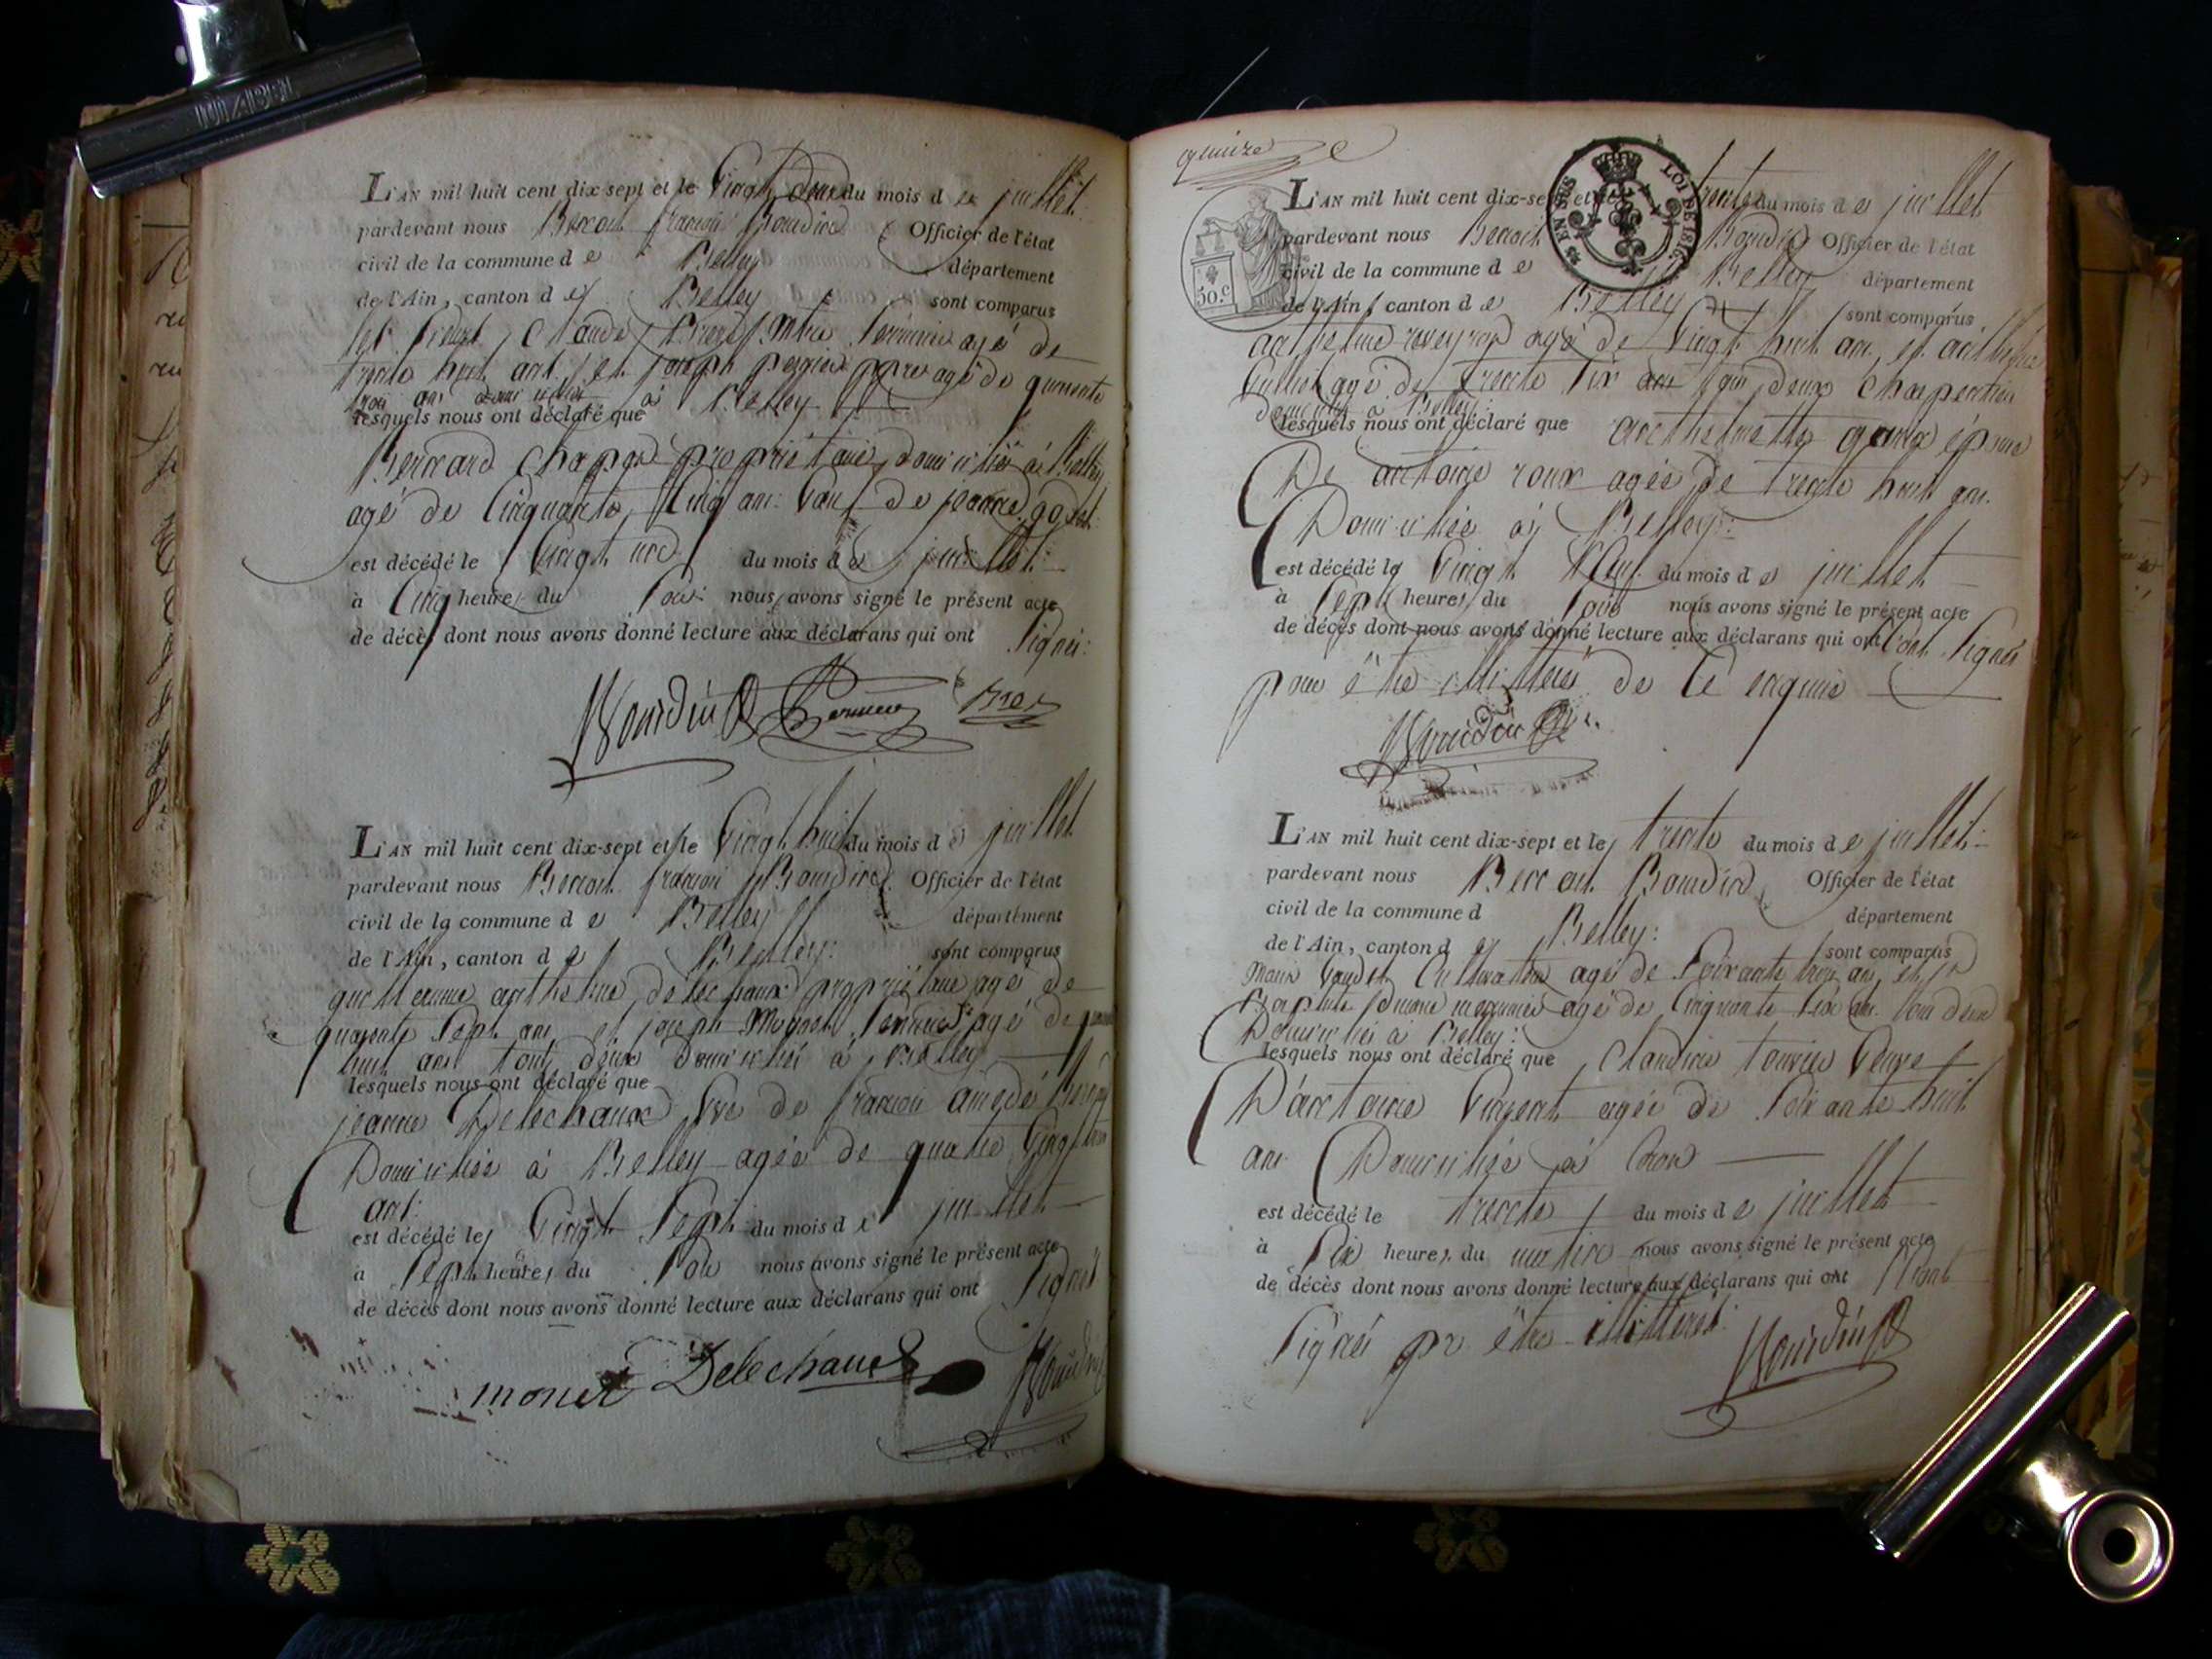 L'AN mil huit cent dix-sept et le Vingt deux du mois de juillet
pardevant nous Benoit françois Bourdin Officier de l'état
civil de la commune de Belley département
de l'Ain, canton de Belley sont comparus
les Sieurs Claude agé de
trente huit ans, et joseph agé de quarante
trois ans domiciliés à Belley
lesquels nous ont déclaré que
Bernard Chapon proprietaire domicilié à Belley
agé de Cinquante Cinq ans de jeanne
est décédé le Vingt un du mois de juillet
à Cinq heures du Soir nous avons signé le présent acte
de décès dont nous avons donné lecture aux déclarans qui ont Signés
Bourdin
L'AN mil huit cent dix-sept et le Vingt huit du mois de juillet
pardevant nous Benoit françois Bourdin Officier de l'état
civil de la commune de Belley département
de l'Ain, canton de Belley sont comparus
guillaume anthelme delechaux propriétaire agé de
quarante Sept ans et joseph agé de
huit ans tous deux domiciliés à Belley
lesquels nous ont déclaré que
jeanne Delechaux Vve de françois amedé
Domiciliée à Belley agée de quatre Vingt
ans
est décédé le Vingt Sept du mois de juillet
à Sept heures du Soir nous avons signé le présent acte
de décès dont nous avons donné lecture aux déclarans qui ont Signés
monet Delechaux Bourdin
quinze
50.c
EN SUS LOI DE 1816
L'AN mil huit cent dix-sept et le trente du mois de juillet
pardevant nous Benoit Bourdin Officier de l'état
civil de la commune de Belley département
de l'Ain, canton de Belley sont comparus
anthelme reveyron agé de Vingt huit ans, et anthelme
agé de trente Six ans tous deux Charpentiers
domiciliés à Belley
lesquels nous ont déclaré que anthelmette épouse
De antoine roux agée de trente huit ans
Domiciliée à Belley
est décédé le Vingt Neuf du mois de juillet
à Sept heures du Soir nous avons signé le présent acte
de décès dont nous avons donné lecture aux déclarans qui ont Signés
pour être illitérés de ce enquis
Bourdin
L'AN mil huit cent dix-sept et le trente du mois de juillet
pardevant nous Benoit Bourdin Officier de l'état
civil de la commune d Belley département
de l'Ain, canton de Belley sont comparus
Cultivateur agé de Soixante trois ans, et
agé de Cinquante Six ans tous deux
Domiciliés à Belley
lesquels nous ont déclaré que Claudine Veuve
D'antoine Vincent agée de Soixante huit
ans Domiciliée à
est décédé le trente du mois de juillet
à Dix heures du matin nous avons signé le présent acte
de décès dont nous avons donné lecture aux déclarans qui ont
Signés pr être illitérés
Bourdin